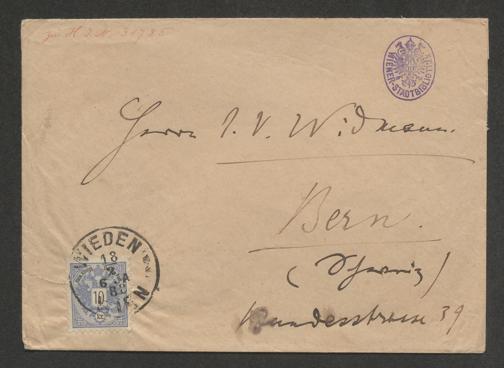 zu H.I.N. 31785
WIENER-STADTBIBLIOTHEK
Herrn J. V. Widmann.
Bern.
(Schweiz)
Bundesstrasse 39
WIEDEN
13
2
6
88
WIEN
10